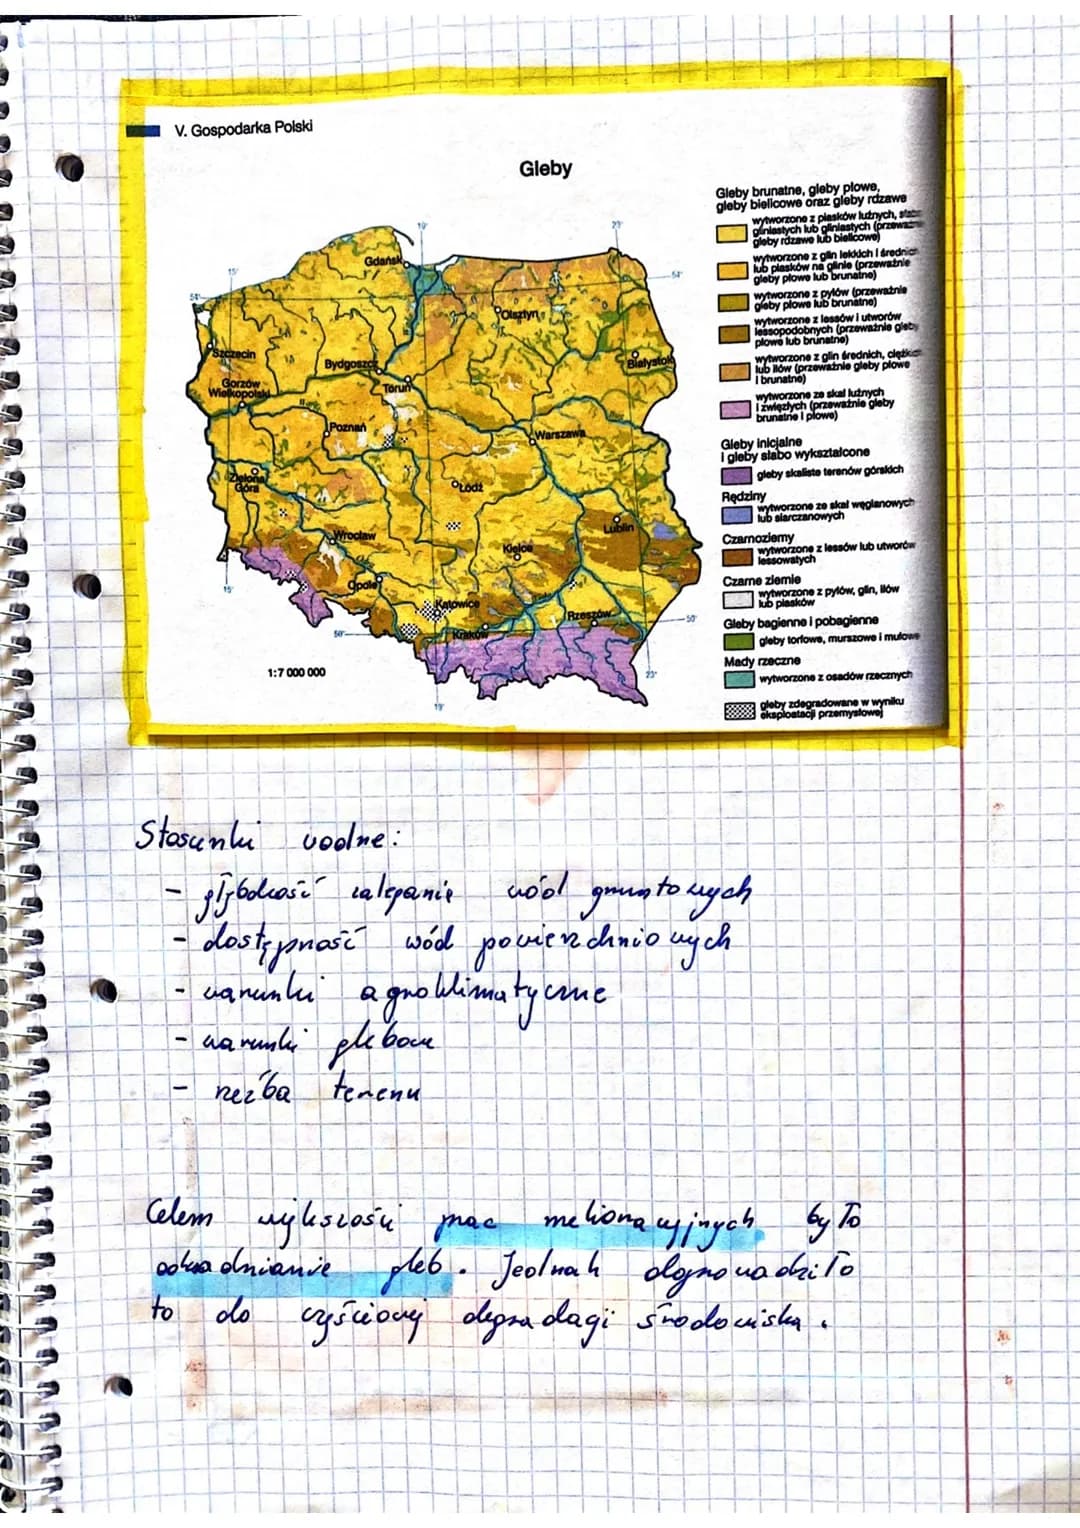 V. Gospodarka Polski
Gleby
Gleby brunatne, gleby płowe,
gleby bielicowe oraz gleby rdzawe
wytworzone z piasków luźnych, słabo
gliniastych lub gliniastych (przeważnie
gleby rdzawe lub bielicowe)
wytworzone z glin lekkich i średnich
lub piasków na glinie (przeważnie
gleby płowe lub brunatne)
wytworzone z pyłów (przeważnie
gleby płowe lub brunatne)
wytworzone z lessów i utworów
lessopodobnych (przeważnie gleby
płowe lub brunatne)
wytworzone z glin średnich, ciężkich
lub iłów (przeważnie gleby płowe
i brunatne)
wytworzone ze skał luźnych
i zwięzłych (przeważnie gleby
brunatne i płowe)
Gleby inicjalne
i gleby słabo wykształcone
gleby skaliste terenów górskich
Rędziny
wytworzone ze skał węglanowych
lub siarczanowych
Czarnoziemy
wytworzone z lessów lub utworów
lessowatych
Czarne ziemie
wytworzone z pyłów, glin, iłów
lub piasków
Gleby bagienne i pobagienne
gleby torfowe, murszowe i mułowe
Mady rzeczne
wytworzone z osadów rzecznych
gleby zdegradowane w wyniku
eksploatacji przemysłowej
19°
23°
15°
54°
54°
Gdańsk
Olsztyn
Szczecin
Bydgoszcz
Białystok
Gorzów
Wielkopolski
Toruń
Poznań
Warszawa
Zielona
Góra
Łódź
Wrocław
Lublin
Kielce
Opole
Katowice
Rzeszów
Kraków
15°
50°
50°
19°
23°
1:7 000 000
Stosunki wodne:
- głębokość zalegania wód gruntowych
- dostępność wód powierzchniowych
- warunki agroklimatyczne
- warunki glebowe
- rzeźba terenu
Celem większości prac melioracyjnych było
odwadnianie gleb. Jednak doprowadziło
to do częściowej degradacji środowiska.